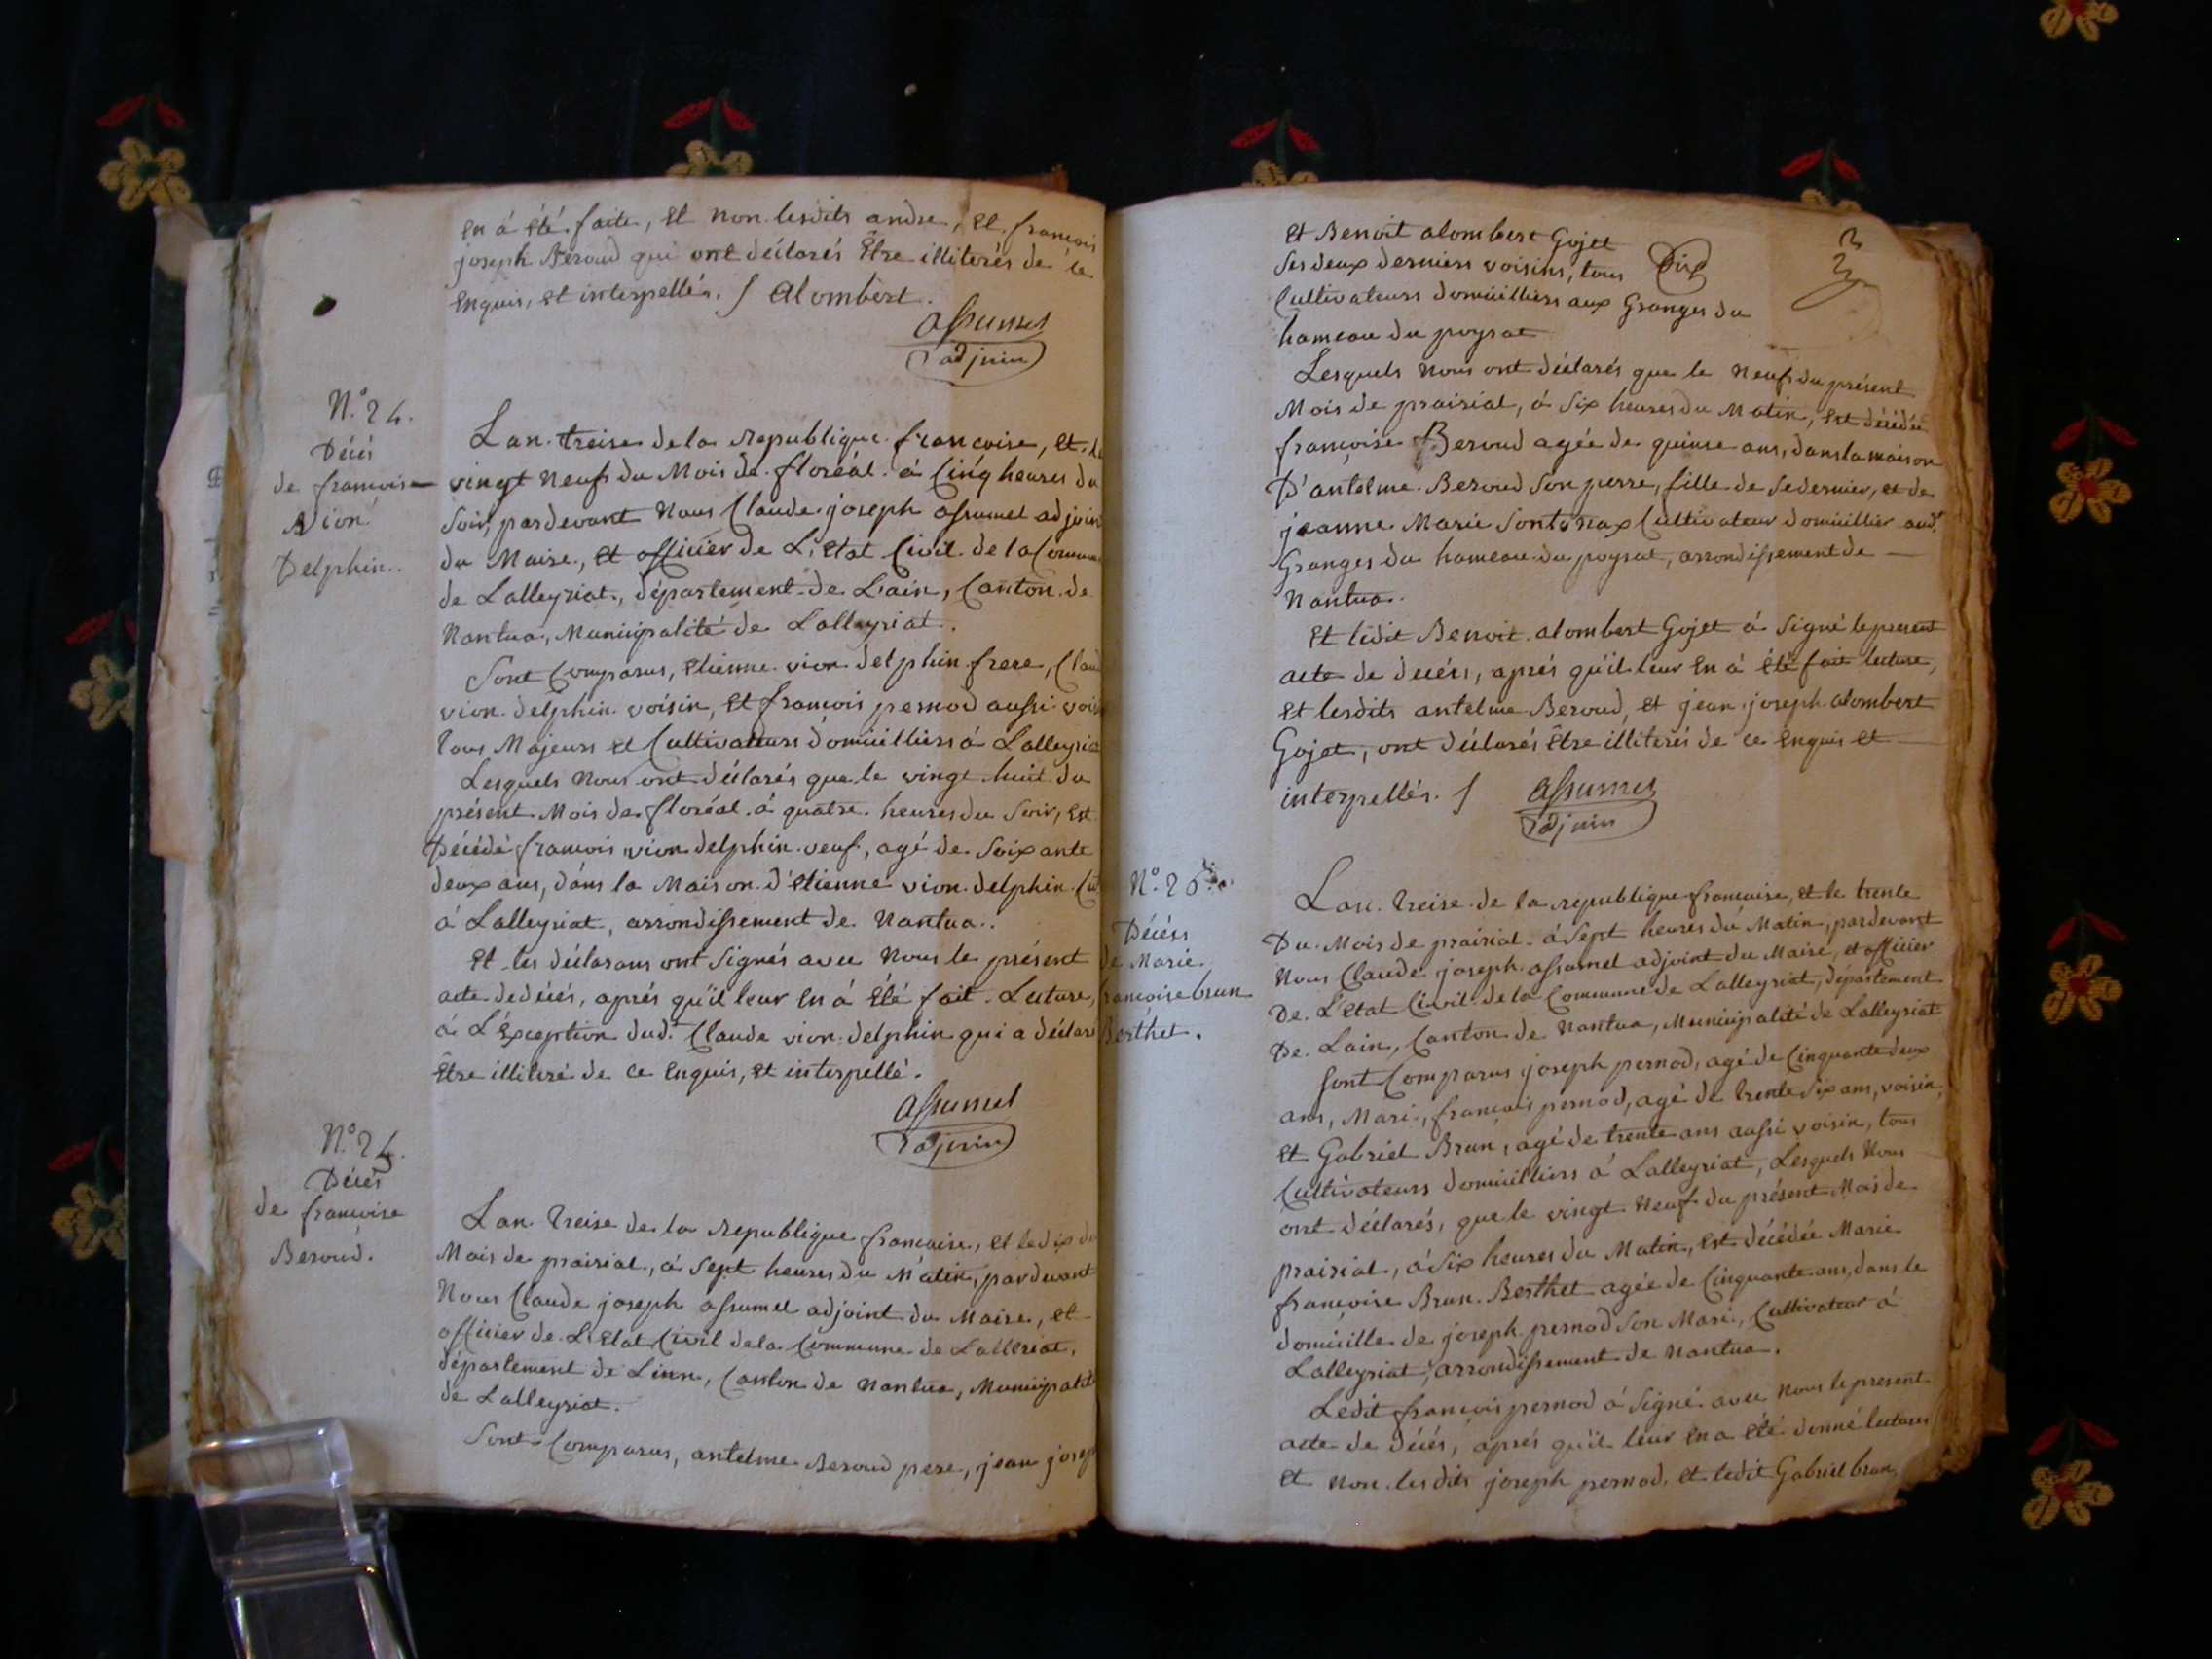 en á été faite, et non lesdits andre, et françois
joseph Beroud qui ont déclarés Être illiterés de ce
enquis, et interpellés. / alombert.
assumel
adjoin
N.° 24.
Décés
de francoise
Vion
Delphin..
Lan treise de la republique francoise, et le
vingt neufs du Mois de floréal à Cinq heures du
soir, pardevant Nous Claude joseph assumel adjoin
du Maire, et officier de L'etat Civil de la Commune
de Lalleyriat, département de L'ain, Canton de
Nantua, Municipalité de Lalleyriat.
Sont Comparus, etienne vion delphin frere, Clau
vion delphin voisin, et françois pernod aussi voisin
tous Majeurs et Cultivateurs domicilliers á Lalleyria
Lesquels Nous ont déclarés que le vingt huit du
présent Mois de floréal á quatre heures du soir, est
Décédé francois vion delphin veuf, agé de soixante
deux ans, dans la Maison d'etienne vion delphin Cu
á Lalleyriat, arrondissement de Nantua..
et les déclarans ont signés avec Nous le présent
acte de décés, aprés qu'il leur en á été fait Lecture,
á L'éxception dud.t Claude vion delphin qui a déclaré
Être illiteré de ce enquis, et interpellé.
assumel
adjoin
N.° 24.
Décés
de francoise
Beroud.
Lan treise de la republique francaise, et le dix du
Mois de prairial, á sept heures du Matin, pardevant
Nous Claude joseph assumel adjoint du Maire, et
officier de L'etat Civil dela Commune de Lalleriat,
département de Linn, Canton de Nantua, Municipalité
de Lalleyriat.
Sont Comparus, antelme Beroud pere, jean josep
et Benoit alombert Gojet
ses deux derniers voisins, tous
Cultivateurs domicilliers aux Granges du
hameau du poysat
Lesquels Nous ont déclarés que le Neufs du présent
Mois de prairial, á six heures du Matin, est décédée
françoise Beroud agée de quinse ans, dans la maison
D'antelme Beroud son perre, fille de se dernier, et de
jeanne Marie sontonax Cultivateur domicillier aud.t
Granges du hameau du poysat, arrondissement de
Nantua.
et ledit Benoit alombert Gojet á signé le present
acte de décés, aprés qu'il leur en á été fait lecture,
et lesdits antelme Beroud, et jean joseph alombert
Gojet, ont déclarés Être illiterés de ce enquis et
interpellés. / assumel
adjoin
N.° 26.
Décés
de Marie
francoise brun
Berthet.
Lan treise de la republique francaise, et le trente
Du Mois de prairial á sept heures du Matin, pardevant
Nous Claude joseph assumel adjoint du Maire, et officier
De L'etat Civil de la Commune de Lalleyriat, département
De Lain, Canton de Nantua, Municipalité de Lalleyriat
sont Comparus joseph pernod, agé de Cinquante deux
ans, Mari, français pernod, agé de trente six ans, voisin,
et Gabriel Brun, agé de trente ans aussi voisin, tous
Cultivateurs domicilliers á Lalleyriat, Lesquels Nous
ont déclarés, que le vingt Neuf du présent Mois de
prairial, á six heures du Matin, est décédée Marie
francoise Brun Berthet agée de Cinquante ans, dans le
domicille de joseph pernod son Mari, Cultivateur á
Lalleyriat, arrondissement de Nantua.
Ledit francois pernod á signé avec Nous le present
acte de décés, aprés qu'il leur en a été donné lectures
et non lesdits joseph pernod, et ledit Gabriel brun,